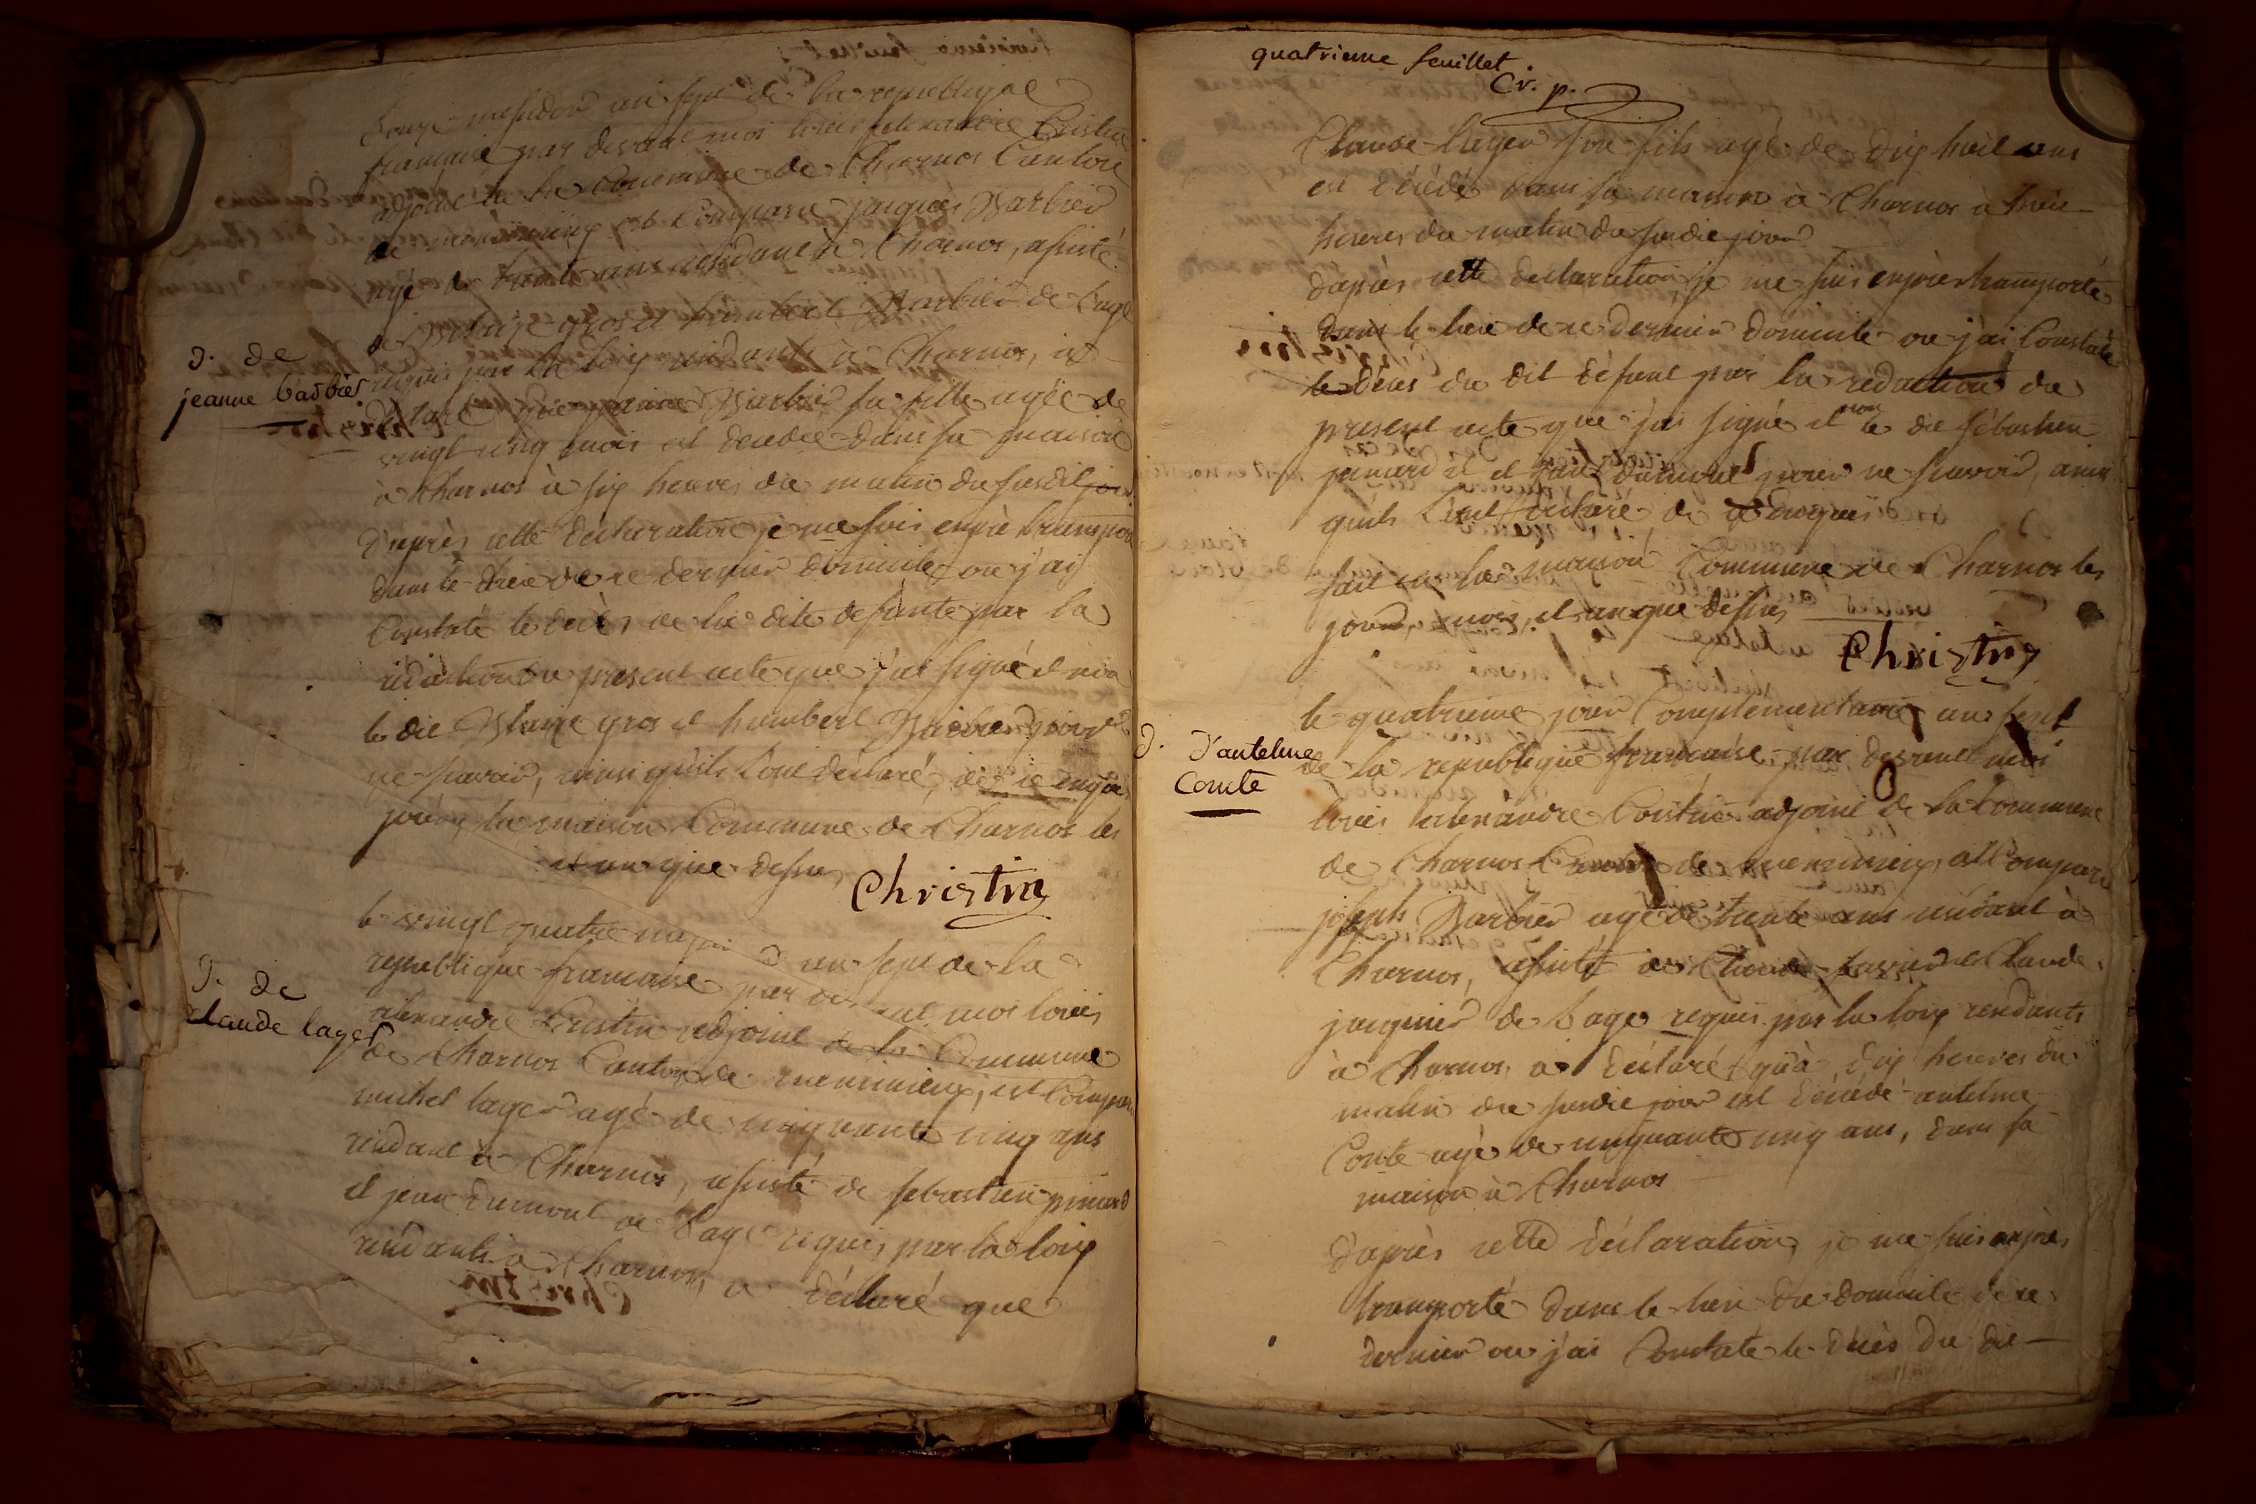 Douze messidor an sept de la republique
francaise par devant moi louis alexandre Cristin
adjoint de la Commune de Charnos Canton
de montimieux est Comparu jacques Barbier
agé de trente ans residant à Charnos, assisté
de Blaise gros et humbert Barbier de l'age
requis par la loix residants à Charnos, et
declaré que jeanne Barbier sa fille agée de
vingt cinq mois est decedée dans sa maison
à Charnos à six heures du matin du susdit jour
D'après cette declaration je me suis transporté
dans le lieu de ce dernier domicile ou j'ai
Constaté le decès de la dite defunte par la
redaction du present acte que j'ai signé et non
le dit Blaise gros et humbert Barbier pour
ne savoir, ainsi qu'ils l'ont declaré, de ce enquis
la maison Commune de Charnos les
et an que dessus
Christin
D. de
jeanne barbier
le vingt quatre an sept de la
republique francaise par devant moi louis
alexandre Cristin adjoint de la Commune
de Charnos Canton de meximieux, est Comparu
michel lager agé de cinquante cinq ans
residant à Charnos, assisté de sebastien pinard
et jean dumont de l'age requis par la loix
residants à Charnos, a déclaré que
D. de
claude lager
quatrieme feuillet
Cr. p.
Claude lager son fils agé de dix huit ans
est décédé dans sa maison à Charnos à
heures du matin du susdit jour
d'après cette declaration je me suis transporté
dans le lieu de ce dernier domicile ou j'ai Constaté
le décès du dit défunt par la redaction du
present acte que j'ai signé et non le dit sébastien
pinard et jean dumont pour ne savoir, ainsi
quils l'ont declaré de ce enquis
fait en la maison Commune de Charnos les
jour, mois, et an que dessus
Christin
le quatrieme jour Complementaire an sept
de la republique francaise par devant moi
louis alexandre Cristin adjoint de la Commune
de Charnos Canton de meximieux, est Comparu
joseph Barbier agé de trente ans residant à
Charnos, assisté de Claude et Claude
jacquier de l'age requis par la loix residants
à Charnos a déclaré qu'à dix heures du
matin du susdit jour est décédé antelme
Conte agé de cinquante cinq ans, dans sa
maison à Charnos
D. d'antelme
Comte
d'après cette déclaration, je me suis
transporté dans le lieu du domicile de ce
dernier ou j'ai Constaté le décès du dit